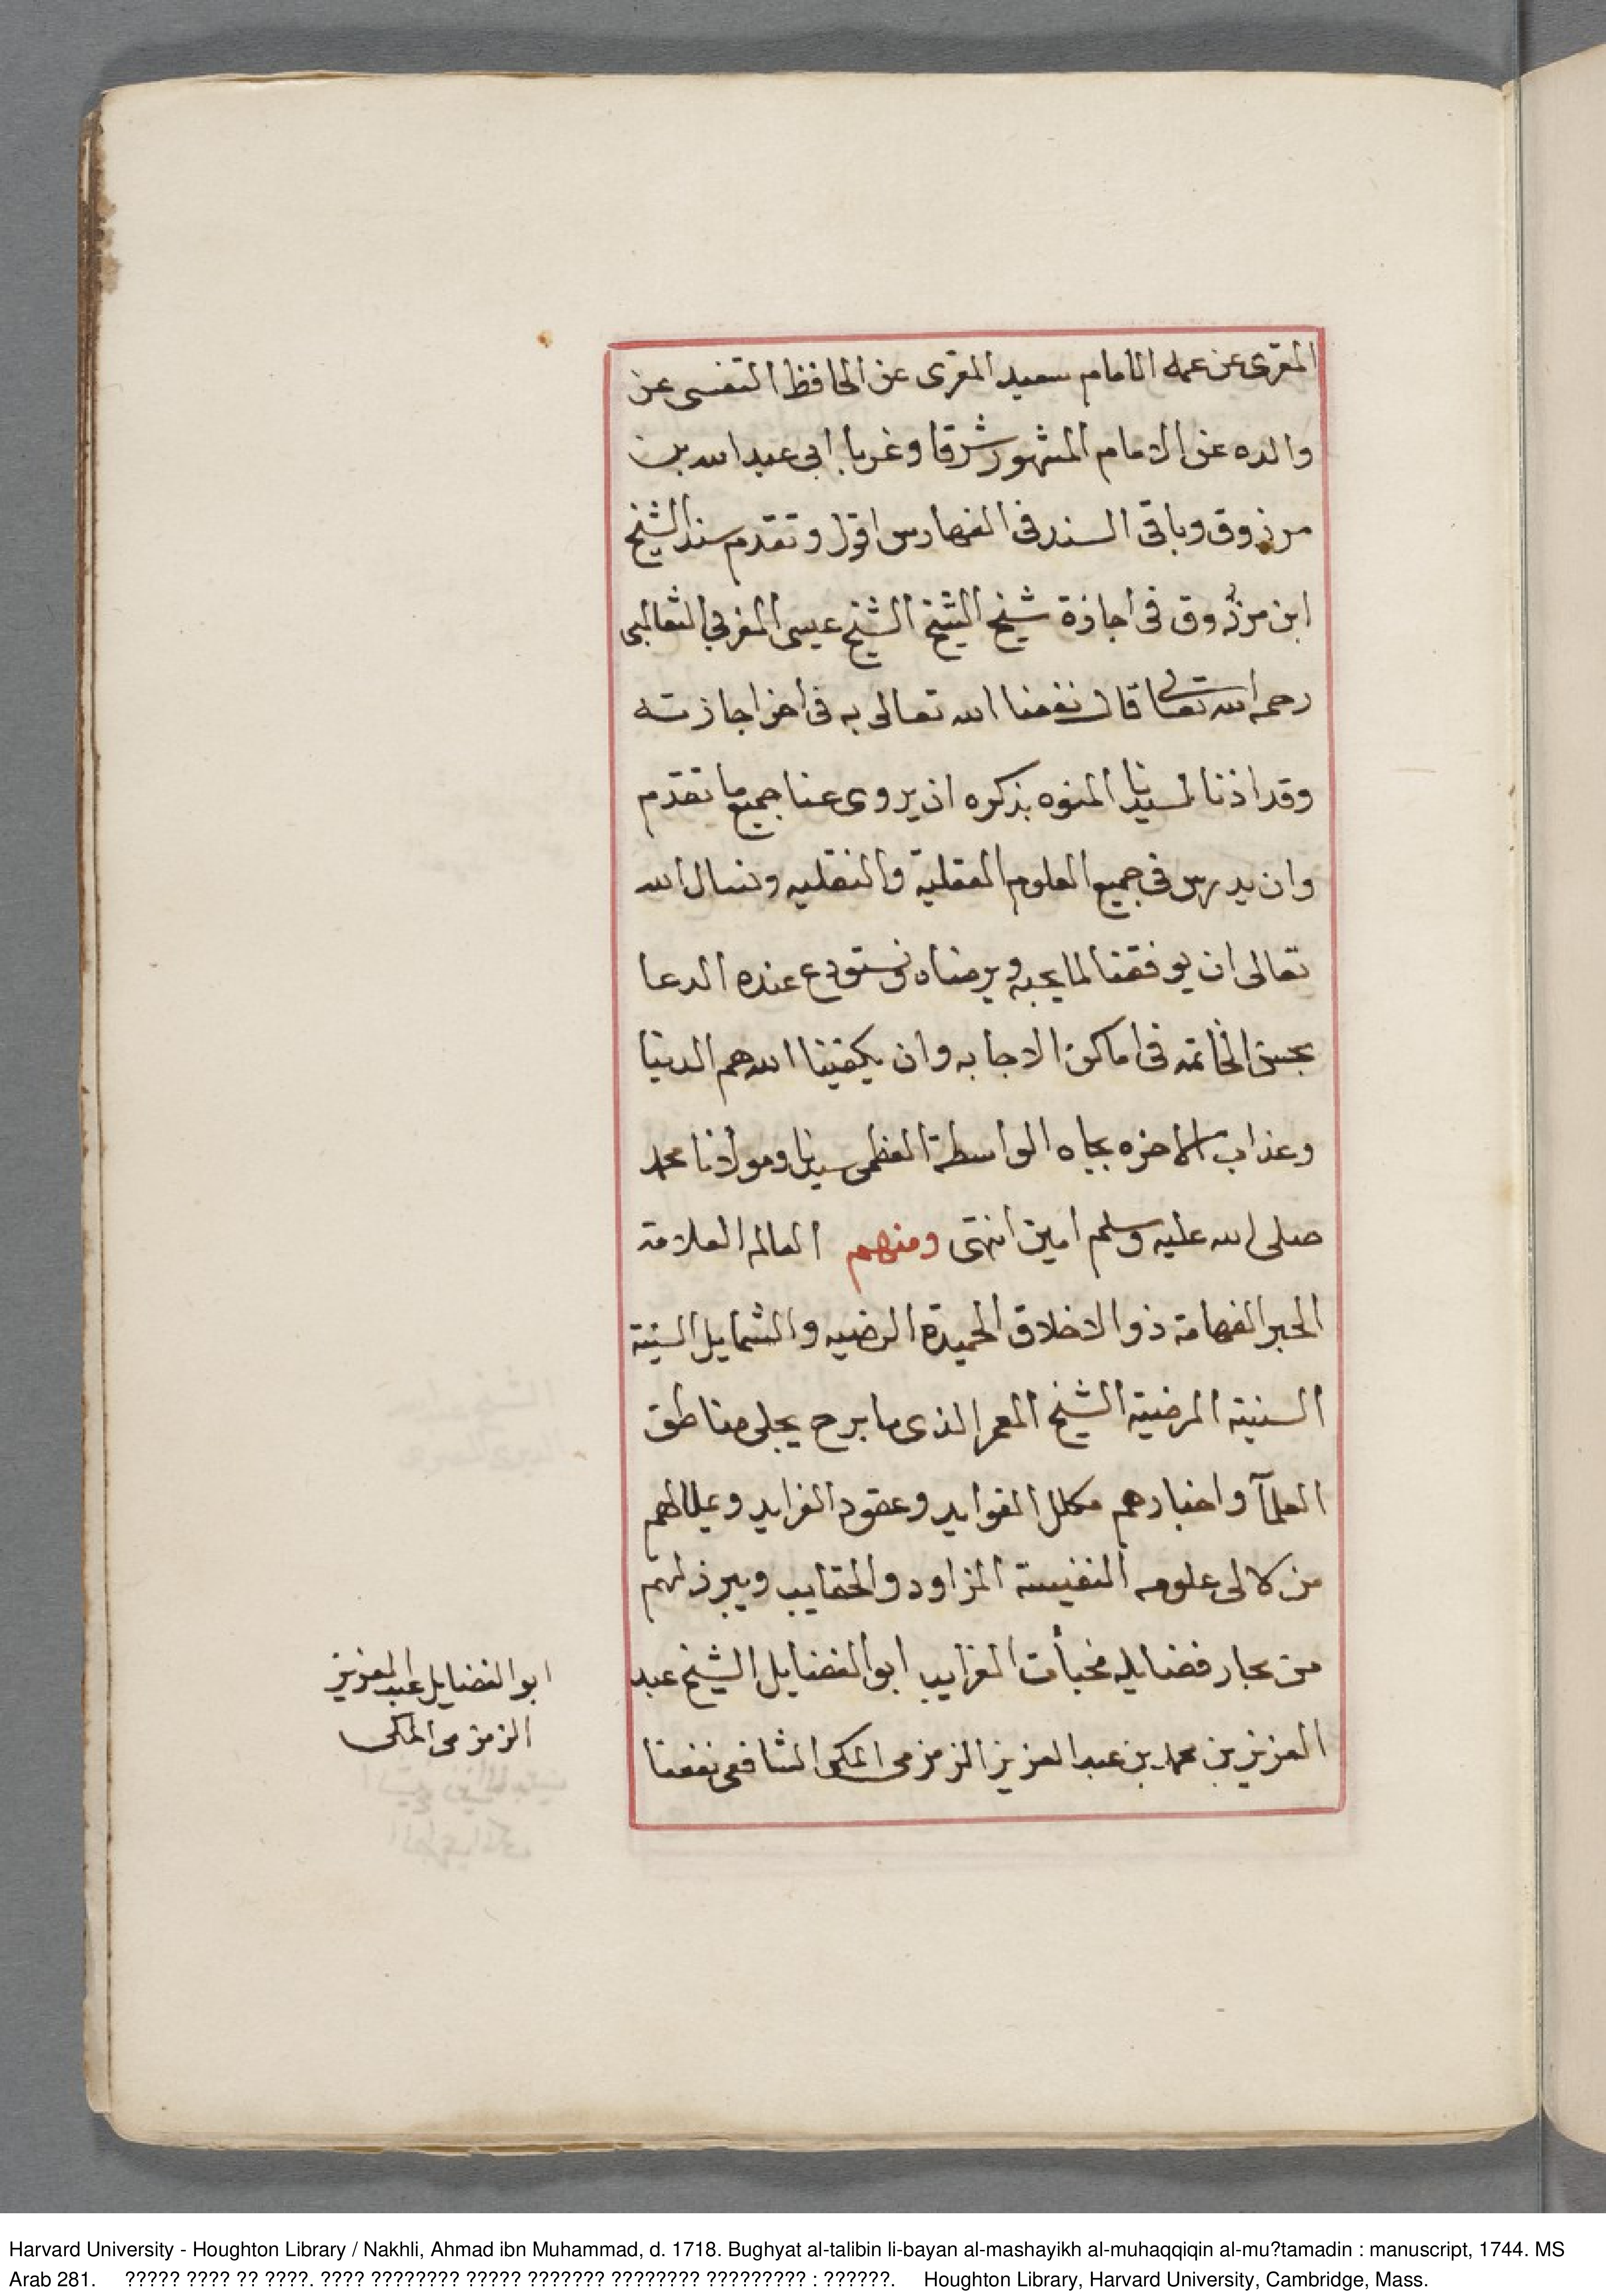 المقرى عن عمه الامام سعيد المقرى عن الحافظ التنسى عن
والده عن الامام المشهور شرقا وغربا ابى عبد الله بن
مرزوق وباقى السند فى الفهارس اقول وتقدم سند الشيخ
ابن مرزوق فى اجازة شيخ الشيخ الشيخ عيسى المغربي الثعالبى
رحمه الله تعالى قال نفعنا الله تعالى به فى اخر اجازته
وقد اذنا لسيدنا المنوه بذكره ان يروى عنا جميع ما تقدم
وان يدرس فى جميع العلوم العقلية والنقليه ونسال الله
تعالى ان يوفقنا لما يحبه ويرضاه ونستودع عنده الدعا
بحسن الخاتمه فى اماكن الاجابه وان يكفينا الله هم الدنيا
وعذاب الاخره بجاه الواسطة العظمى سيدنا ومولانا محمد
صلى الله عليه وسلم امين انتهى ومنهم العالم العلامة
الحبر الفهامة ذو الاخلاق الحميدة الرضيه والشمايل السنية
السنية المرضية الشيخ المعمر الذى ما برح يحلى مناطق
العلمآ واخبارهم بكلل الفوايد وعقود الفرايد ويملالهم
من لالى علومه النفيسة المزاود والحقايب ويبرز لهم
من بحار فضايله مخبأت الغرايب ابو الفضايل الشيخ عبد
العزيز بن محمد بن عبد العزيز الزمزمى المكى الشافعى نفعنا
ابو الفضايل عبد العزيز
الزمزمى المكى
Harvard University - Houghton Library / Nakhli, Ahmad ibn Muhammad, d. 1718. Bughyat al-talibin li-bayan al-mashayikh al-muhaqqiqin al-mu?tamadin : manuscript, 1744. MS
Arab 281. ????? ???? ?? ????. ???? ???????? ????? ??????? ???????? ????????? : ??????. Houghton Library, Harvard University, Cambridge, Mass.